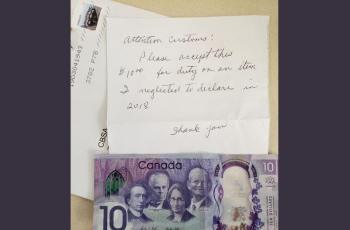 Attention Customs:
Please accept this
$10.00 for duty on an item
I neglected to declare in
2018
Thank you
CBSA
Canada
10
10